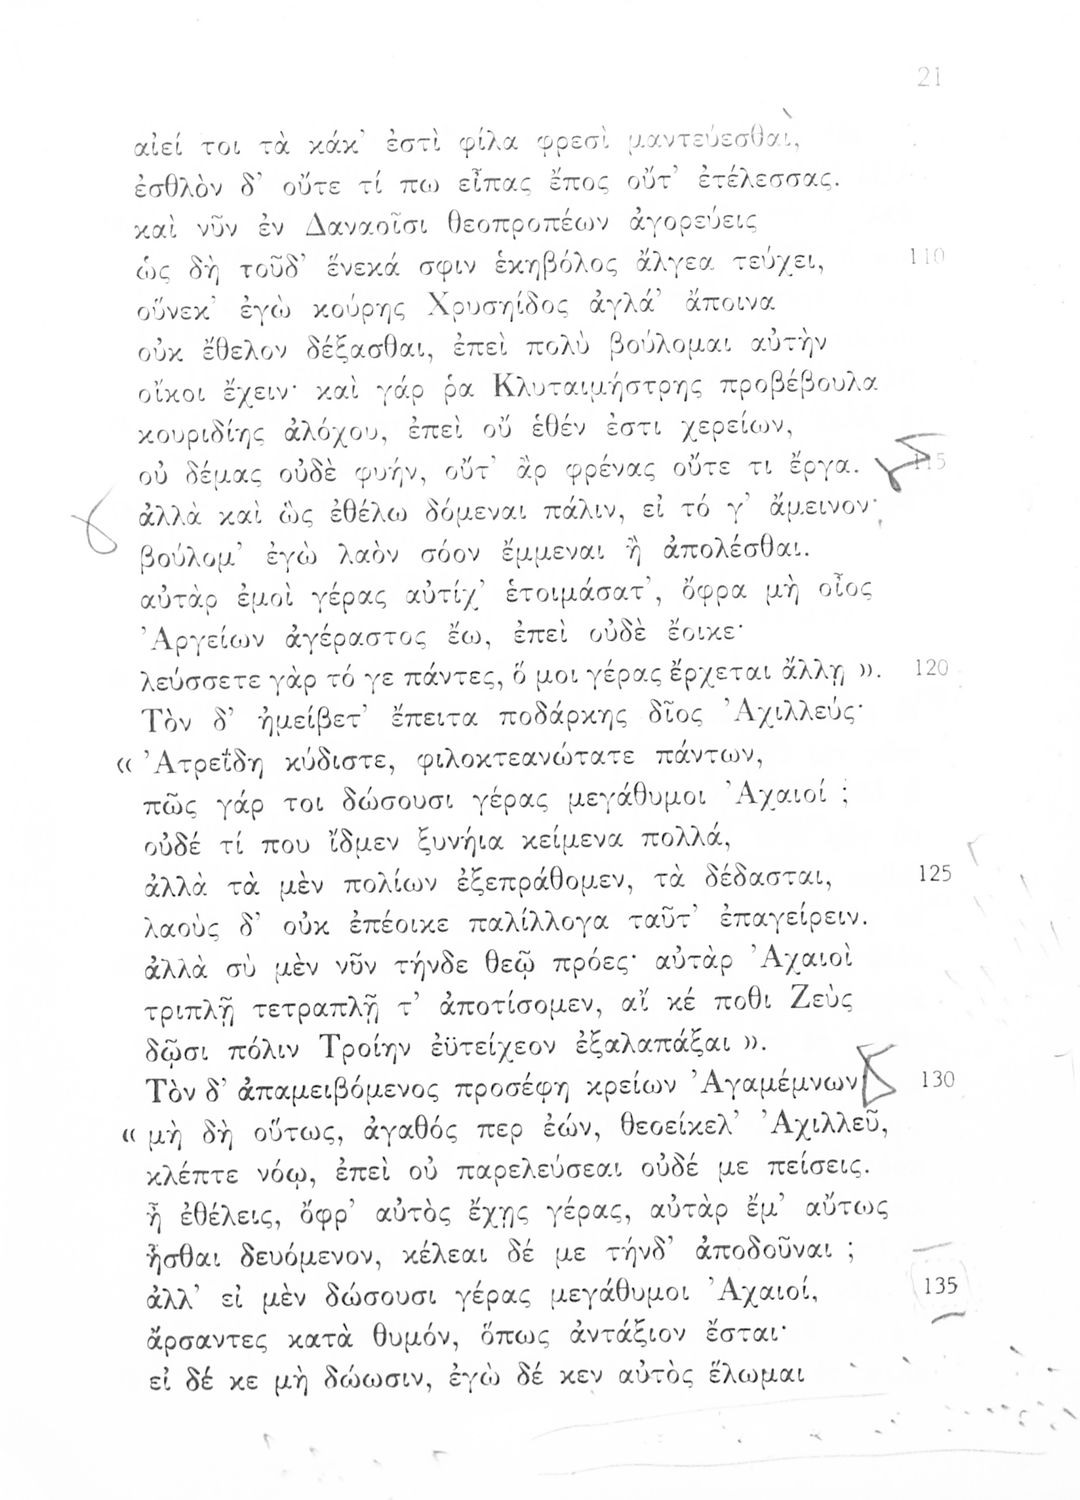 21
αἰεί τοι τὰ κάκ’ ἐστὶ φίλα φρεσὶ μαντεύεσθαι,
ἐσθλὸν δ’ οὔτε τί πω εἶπας ἔπος οὔτ’ ἐτέλεσσας.
καὶ νῦν ἐν Δαναοῖσι θεοπροπέων ἀγορεύεις
ὡς δὴ τοῦδ’ ἕνεκά σφιν ἑκηβόλος ἄλγεα τεύχει, 110
οὕνεκ’ ἐγὼ κούρης Χρυσηίδος ἀγλά’ ἄποινα
οὐκ ἔθελον δέξασθαι, ἐπεὶ πολὺ βούλομαι αὐτὴν
οἴκοι ἔχειν· καὶ γάρ ῥα Κλυταιμήστρης προβέβουλα
κουριδίης ἀλόχου, ἐπεὶ οὔ ἑθέν ἐστι χερείων,
οὐ δέμας οὐδὲ φυήν, οὔτ’ ἂρ φρένας οὔτε τι ἔργα. 115
ἀλλὰ καὶ ὣς ἐθέλω δόμεναι πάλιν, εἰ τό γ’ ἄμεινον·
βούλομ’ ἐγὼ λαὸν σόον ἔμμεναι ἢ ἀπολέσθαι.
αὐτὰρ ἐμοὶ γέρας αὐτίχ’ ἑτοιμάσατ’, ὄφρα μὴ οἶος
’Αργείων ἀγέραστος ἔω, ἐπεὶ οὐδὲ ἔοικε·
λεύσσετε γὰρ τό γε πάντες, ὅ μοι γέρας ἔρχεται ἄλλῃ ». 120
Τὸν δ’ ἠμείβετ’ ἔπειτα ποδάρκης δῖος ’Αχιλλεύς·
« ’Ατρεΐδη κύδιστε, φιλοκτεανώτατε πάντων,
πῶς γάρ τοι δώσουσι γέρας μεγάθυμοι ’Αχαιοί ;
οὐδέ τί που ἴδμεν ξυνήια κείμενα πολλά,
ἀλλὰ τὰ μὲν πολίων ἐξεπράθομεν, τὰ δέδασται, 125
λαοὺς δ’ οὐκ ἐπέοικε παλίλλογα ταῦτ’ ἐπαγείρειν.
ἀλλὰ σὺ μὲν νῦν τήνδε θεῷ πρόες· αὐτὰρ ’Αχαιοὶ
τριπλῇ τετραπλῇ τ’ ἀποτίσομεν, αἴ κέ ποθι Ζεὺς
δῷσι πόλιν Τροίην ἐϋτείχεον ἐξαλαπάξαι ».
Τὸν δ’ ἀπαμειβόμενος προσέφη κρείων ’Αγαμέμνων 130
« μὴ δὴ οὕτως, ἀγαθός περ ἐών, θεοείκελ’ ’Αχιλλεῦ,
κλέπτε νόῳ, ἐπεὶ οὐ παρελεύσεαι οὐδέ με πείσεις.
ἦ ἐθέλεις, ὄφρ’ αὐτὸς ἔχῃς γέρας, αὐτὰρ ἔμ’ αὔτως
ἧσθαι δευόμενον, κέλεαι δέ με τήνδ’ ἀποδοῦναι ;
ἀλλ’ εἰ μὲν δώσουσι γέρας μεγάθυμοι ’Αχαιοί, 135
ἄρσαντες κατὰ θυμόν, ὅπως ἀντάξιον ἔσται·
εἰ δέ κε μὴ δώωσιν, ἐγὼ δέ κεν αὐτὸς ἕλωμαι